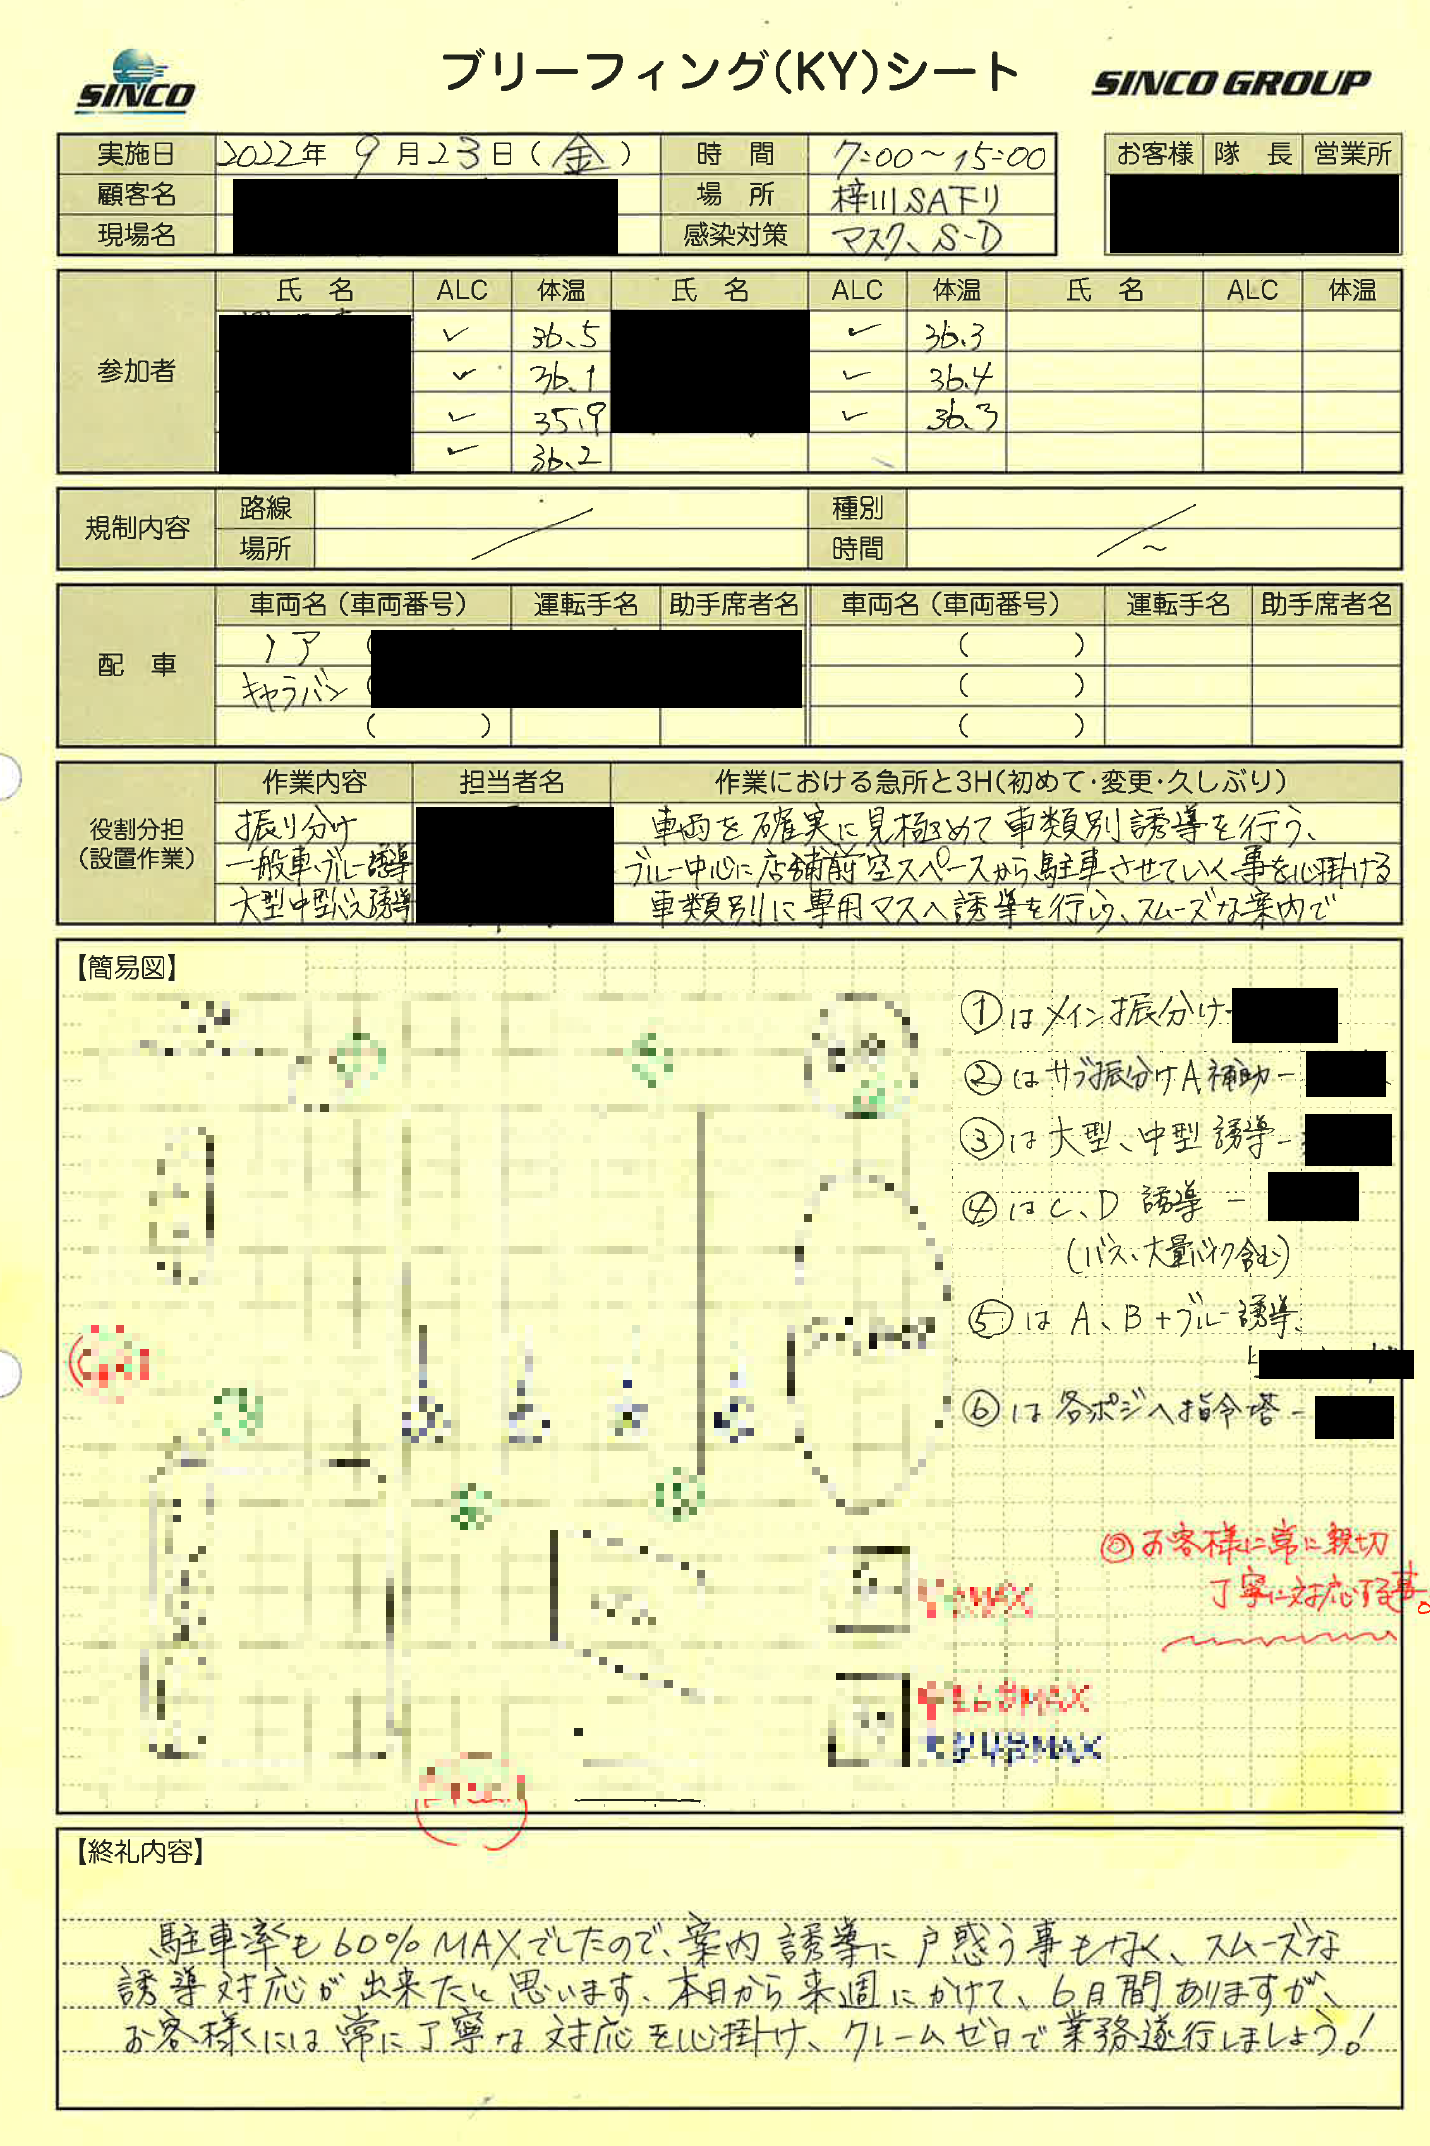 SINCO
ブリーフィング(KY)シート
SINCO GROUP
実施日 2022年 9月23日(金) 時間 7:00〜15:00
お客様 隊長 営業所
顧客名 場所 梓川SA下り
現場名 感染対策 マスク、S-D
参加者 氏名 ALC 体温 氏名 ALC 体温 氏名 ALC 体温
✓ 36.5 ✓ 36.3
✓ 36.1 ✓ 36.4
✓ 35.9 ✓ 36.3
✓ 36.2
規制内容 路線 種別
場所 時間 〜
配車 車両名(車両番号) 運転手名 助手席者名 車両名(車両番号) 運転手名 助手席者名
ノア ( ( )
キャラバン ( ( )
( ) ( )
役割分担(設置作業) 作業内容 担当者名 作業における急所と3H(初めて・変更・久しぶり)
振り分け 車両を確実に見極めて車類別誘導を行う、
一般車・ブルー誘導 ブルー中心に店舗前空スペースから駐車させていく事を心掛ける
大型中型バス誘導 車類別に専用マスへ誘導を行ない、スムーズな案内で
【簡易図】
①はメイン振分け-
②はサブ振分けA補助-
③は大型、中型誘導-
④はC、D 誘導 -
(バス、大量バイク含む)
⑤はA、B+ブルー誘導、
⑥は各ポジへ指令塔-
◎お客様に常に親切
丁寧に対応する事。
MAX
16台MAX
24台MAX
【終礼内容】
駐車率も60%MAXでしたので、案内誘導に戸惑う事もなく、スムーズな
誘導対応が出来たと思います、本日から来週にかけて、6日間ありますが、
お客様には常に丁寧な対応を心掛け、クレームゼロで業務遂行しましょう!